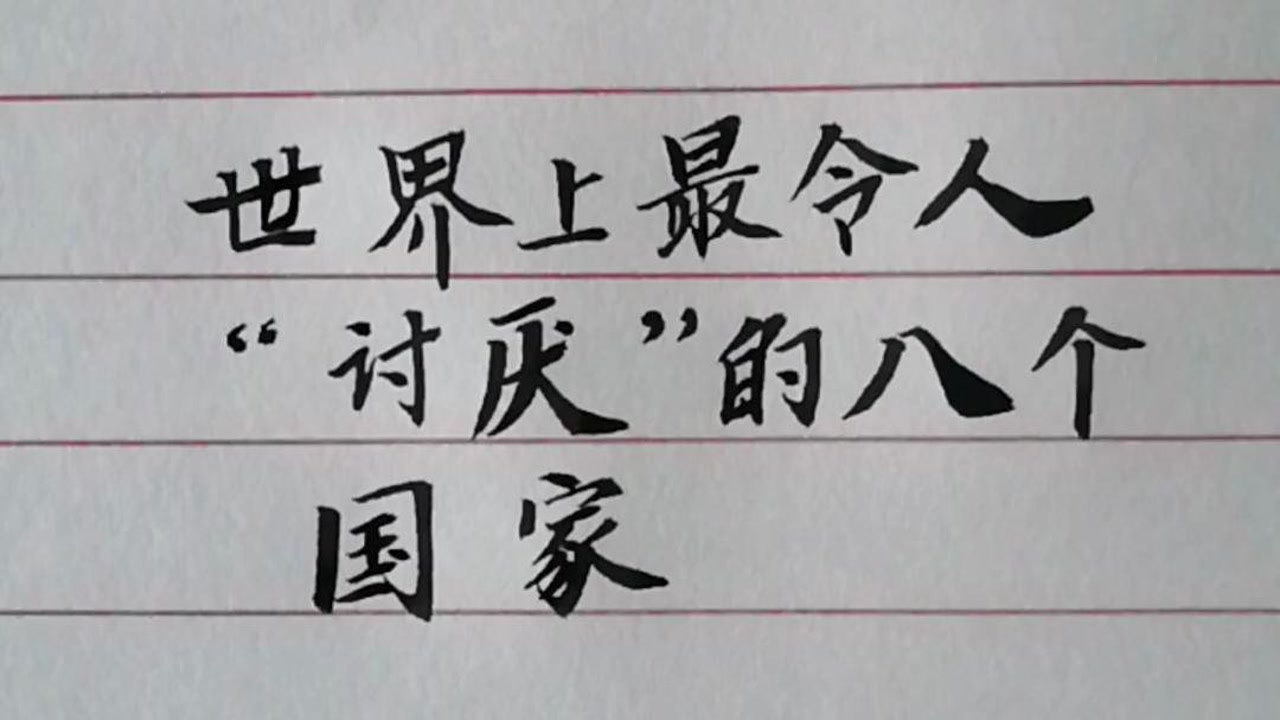 世界上最令人
“讨厌”的八个
国家